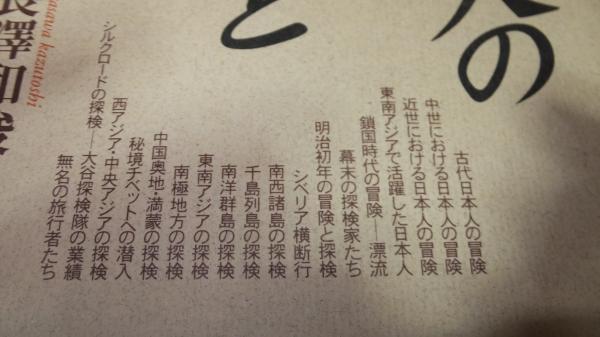 人の
と
古代日本人の冒険
中世における日本人の冒険
近世における日本人の冒険
東南アジアで活躍した日本人
鎖国時代の冒険―漂流
幕末の探検家たち
明治初年の冒険と探検
シベリア横断行
南西諸島の探検
千島列島の探検
南洋群島の探検
東南アジアの探検
南極地方の探検
中国奥地・満蒙の探検
秘境チベットへの潜入
西アジア・中央アジアの探検
シルクロードの探検―大谷探検隊の業績
無名の旅行者たち
asawa kazutoshi
長澤和俊